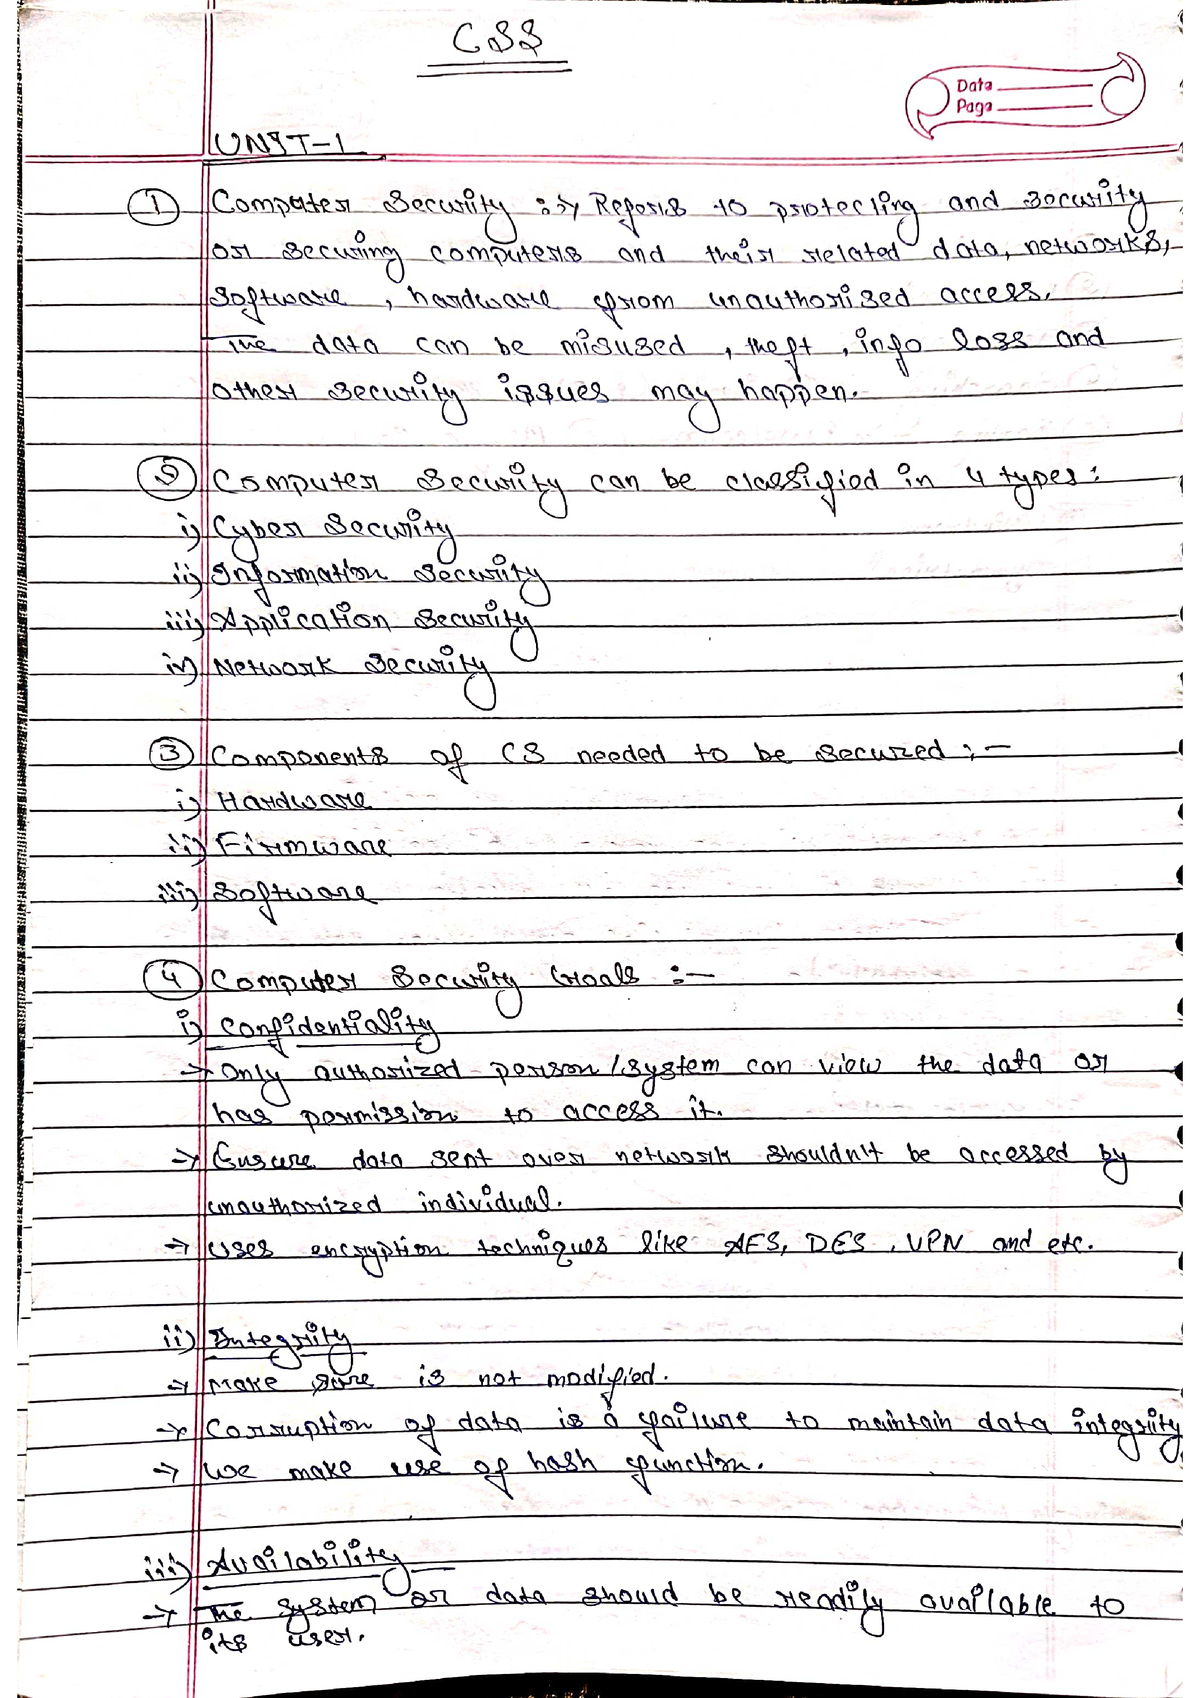 CSS
Data
Page
UNIT-1
① Computer Security :→ Refers to protecting and security
or securing computers and their related data, networks,
software, hardware from unauthorised access.
The data can be misused, theft, info loss and
other security issues may happen.
② Computer Security can be classified in 4 types:
i) Cyber Security
ii) Information Security
iii) Application Security
iv) Network Security
③ Components of CS needed to be secured :-
i) Hardware
ii) Firmware
iii) Software
④ Computer Security Goals :-
i) Confidentiality
→ Only authorized person/system can view the data or
has permission to access it.
→ Ensure data sent over network shouldn't be accessed by
unauthorized individual.
→ Uses encryption techniques like AES, DES, VPN and etc.
ii) Integrity
→ Make sure is not modified.
→ Corruption of data is a failure to maintain data integrity
→ We make use of hash function.
iii) Availability
→ The system or data should be readily available to
its user.